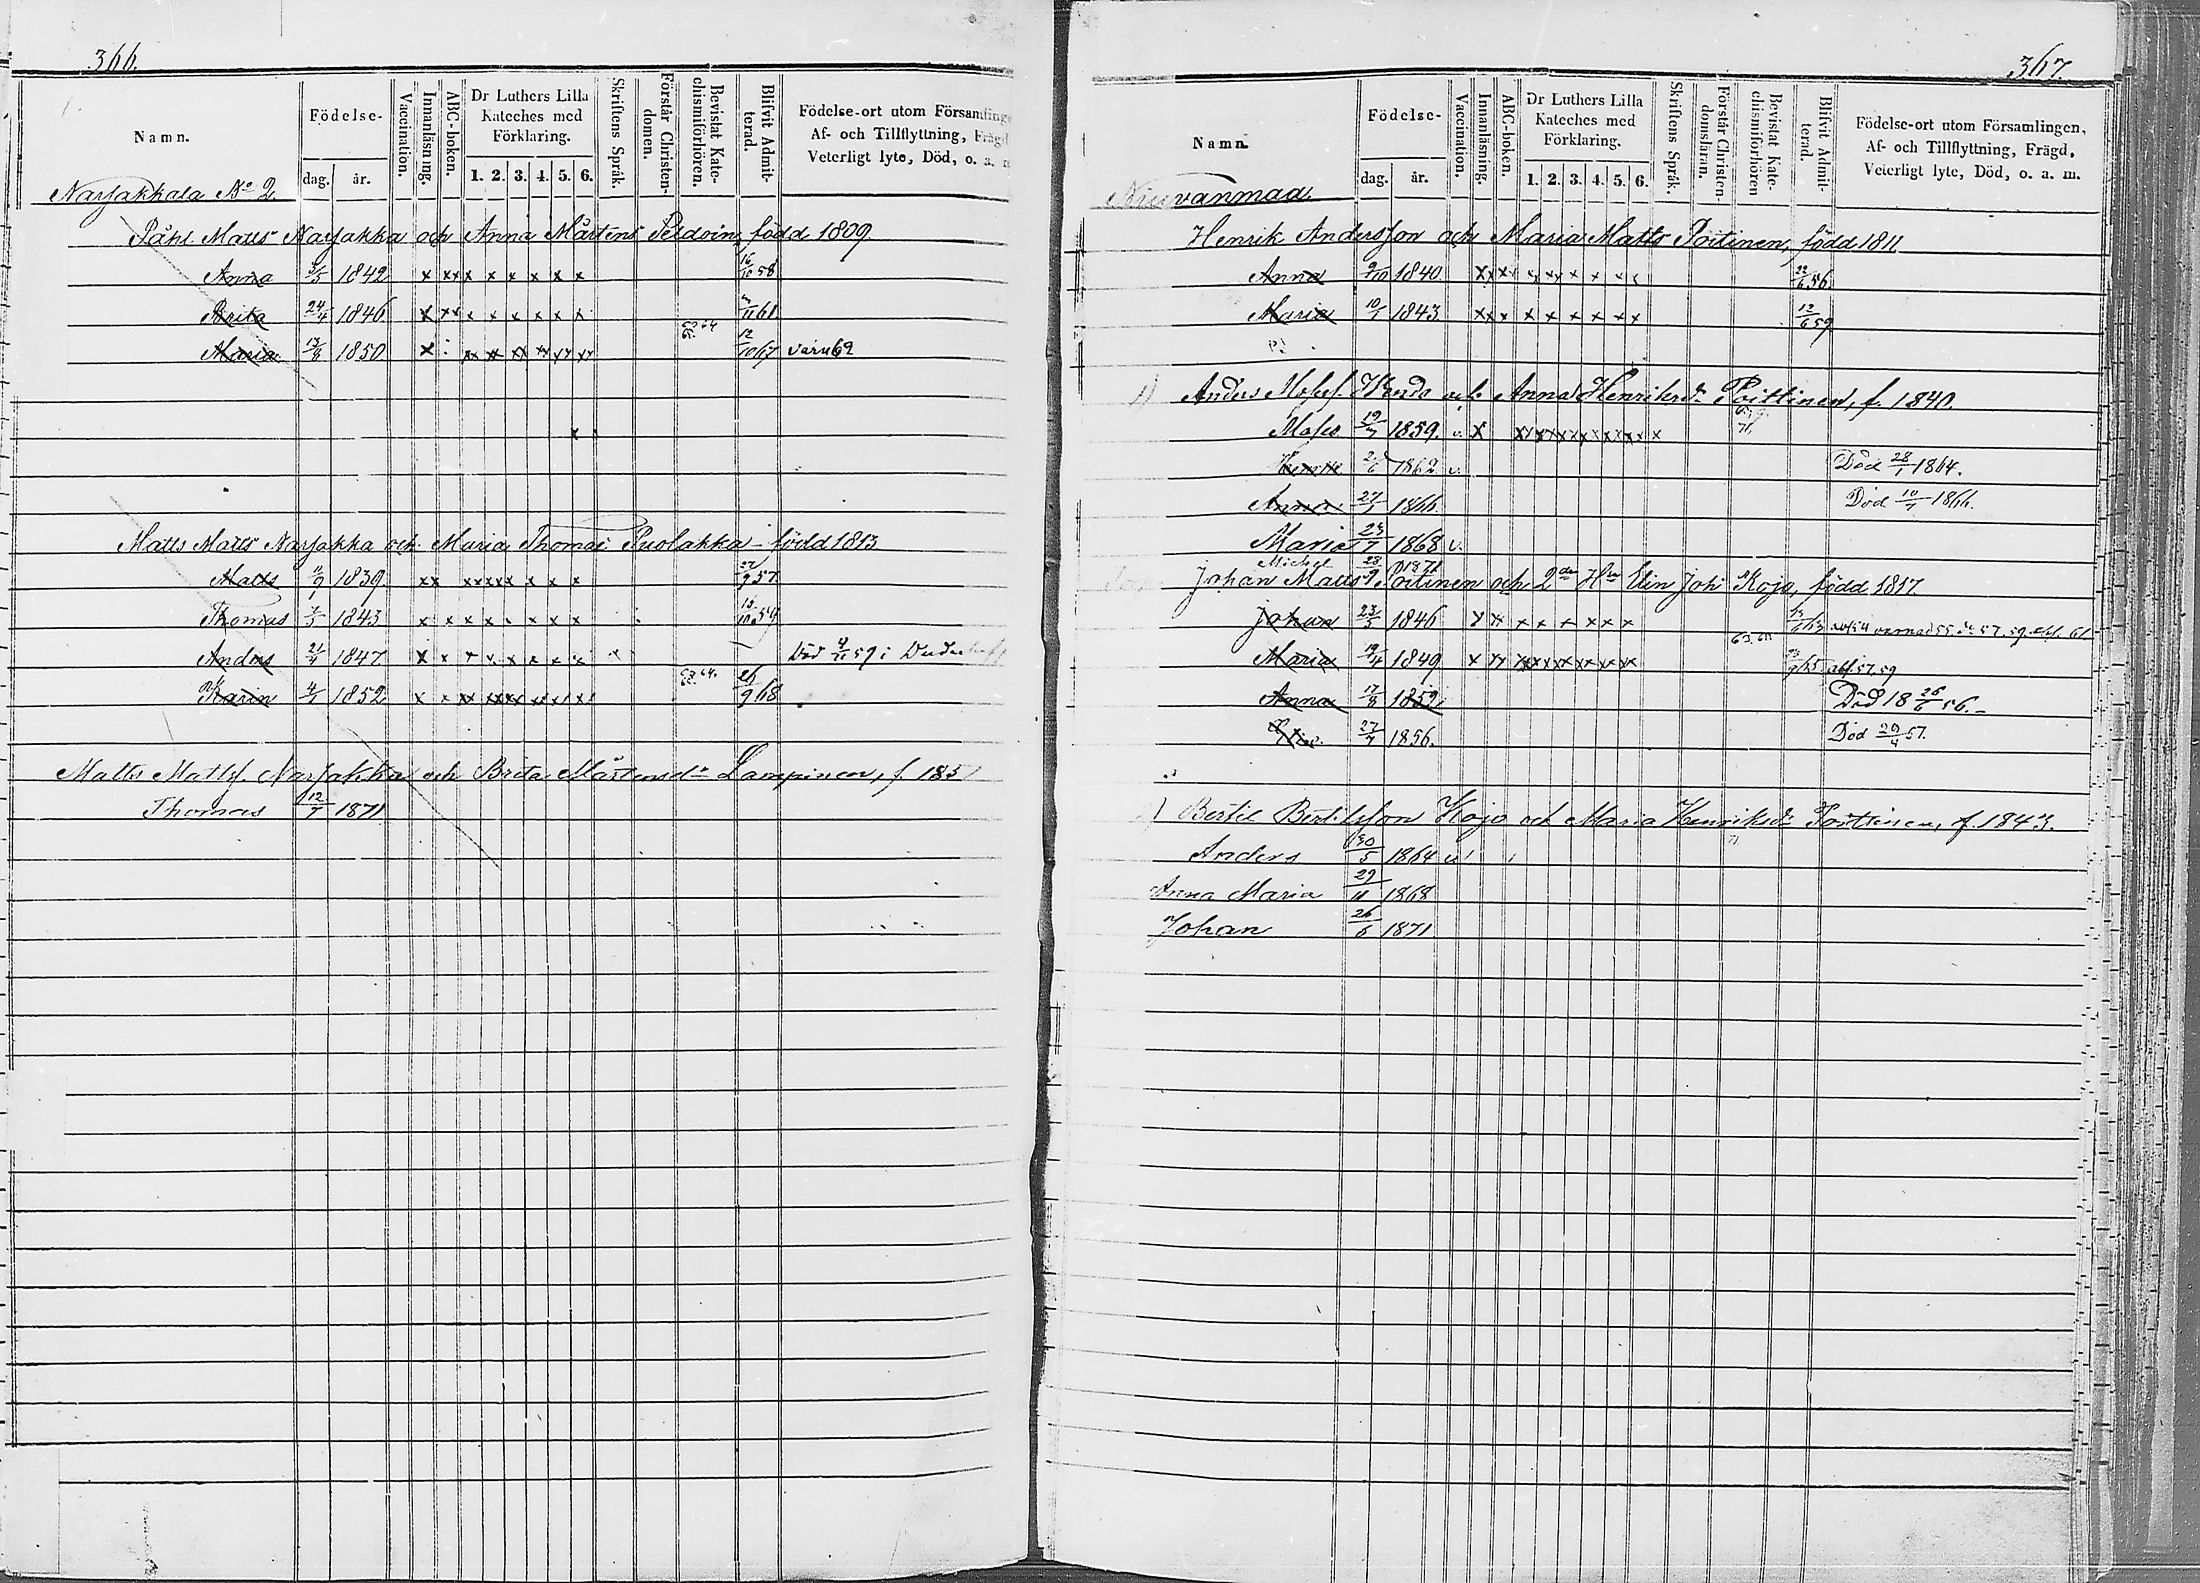 366.
Namn.
Födelse-
dag. år.
Vaccination.
Innanläsning.
ABC-boken.
Dr Luthers Lilla
Kateches med
Förklaring.
1. 2. 3. 4. 5. 6.
Skriftens Språk.
Förstår Christen-
domen.
Bevistat Kate-
chismiförhören.
Blifvit Admit-
terad.
Födelse-ort utom Församling
Af- och Tillflyttning, Frägd
Veterligt lyte, Död, o. a. m
Narjakkala No 2.
Påhl Matts Narjakka och Anna Mårtens Peldoin, född 1809.
Anna 1842 x xx x x x x x x 16/10 58
Brita 24/4 1846 x xx x x x x x x 61
Maria 13/8 1850 x 12/10 67 varu 62
Matts Matts Narjakka och Maria Thomas Puolakka född 1813
Matts 11/9 1839 xx xxxxx x x x 27/9 57
Thomas 1843 x x x x x x x x 59
Anders 21/4 1847 x x x x x x x x Död 4/11 59 i
Karin 4/1 1852 x x xx xxxx xx xx 26/9 68
Matts Mattsf. Narjakka och Brita Mårtensdr Lampinen, f. 185
Thomas 12/7 1871
367.
Namn.
Födelse-
dag. år.
Vaccination.
Innanläsning.
ABC-boken.
Dr Luthers Lilla
Kateches med
Förklaring.
1. 2. 3. 4. 5. 6.
Skriftens Språk.
Förstår Christen-
domsläran.
Bevistat Kate-
chismiförhören
Blifvit Admit-
terad.
Födelse-ort utom Församlingen,
Af- och Tillflyttning, Frägd,
Veterligt lyte, Död, o. a. m.
Niuvanmaa.
Henrik Andersson och Maria Matts Poitinen, född 1811
Anna 9/10 1840 xxx x xx x x x x 22/6 56
Maria 10/1 1843 xxx x x x x x x 12/6 59
1) Anders Mosesf. och Anna Henriksdr Poittinen, f. 1840.
Moses 19/7 1859. v. x x
Henrik 1862 v. Död 28/1 1864.
Anna 27/1 1866 Död 10/7 1866.
Maria 23/7 1868 v.
Michel 28/9 1871
Johan Matts Poitinen och 2dra Hu Elin Joh: Kojo, född 1817
Johan 23/5 1846 x xx x x x x x x
Maria 19/4 1849 x xx 57, 59
Anna 17/8 1852 Död 18 26/6 56.
Elin. 27/7 1856. Död 29/4 57.
2) Bertil Bertilsson Kojo och Maria Henriksdr Poittinen, f. 1843.
Anders 30/5 1864 v
Anna Maria 29/11 1868
Johan 26/6 1871